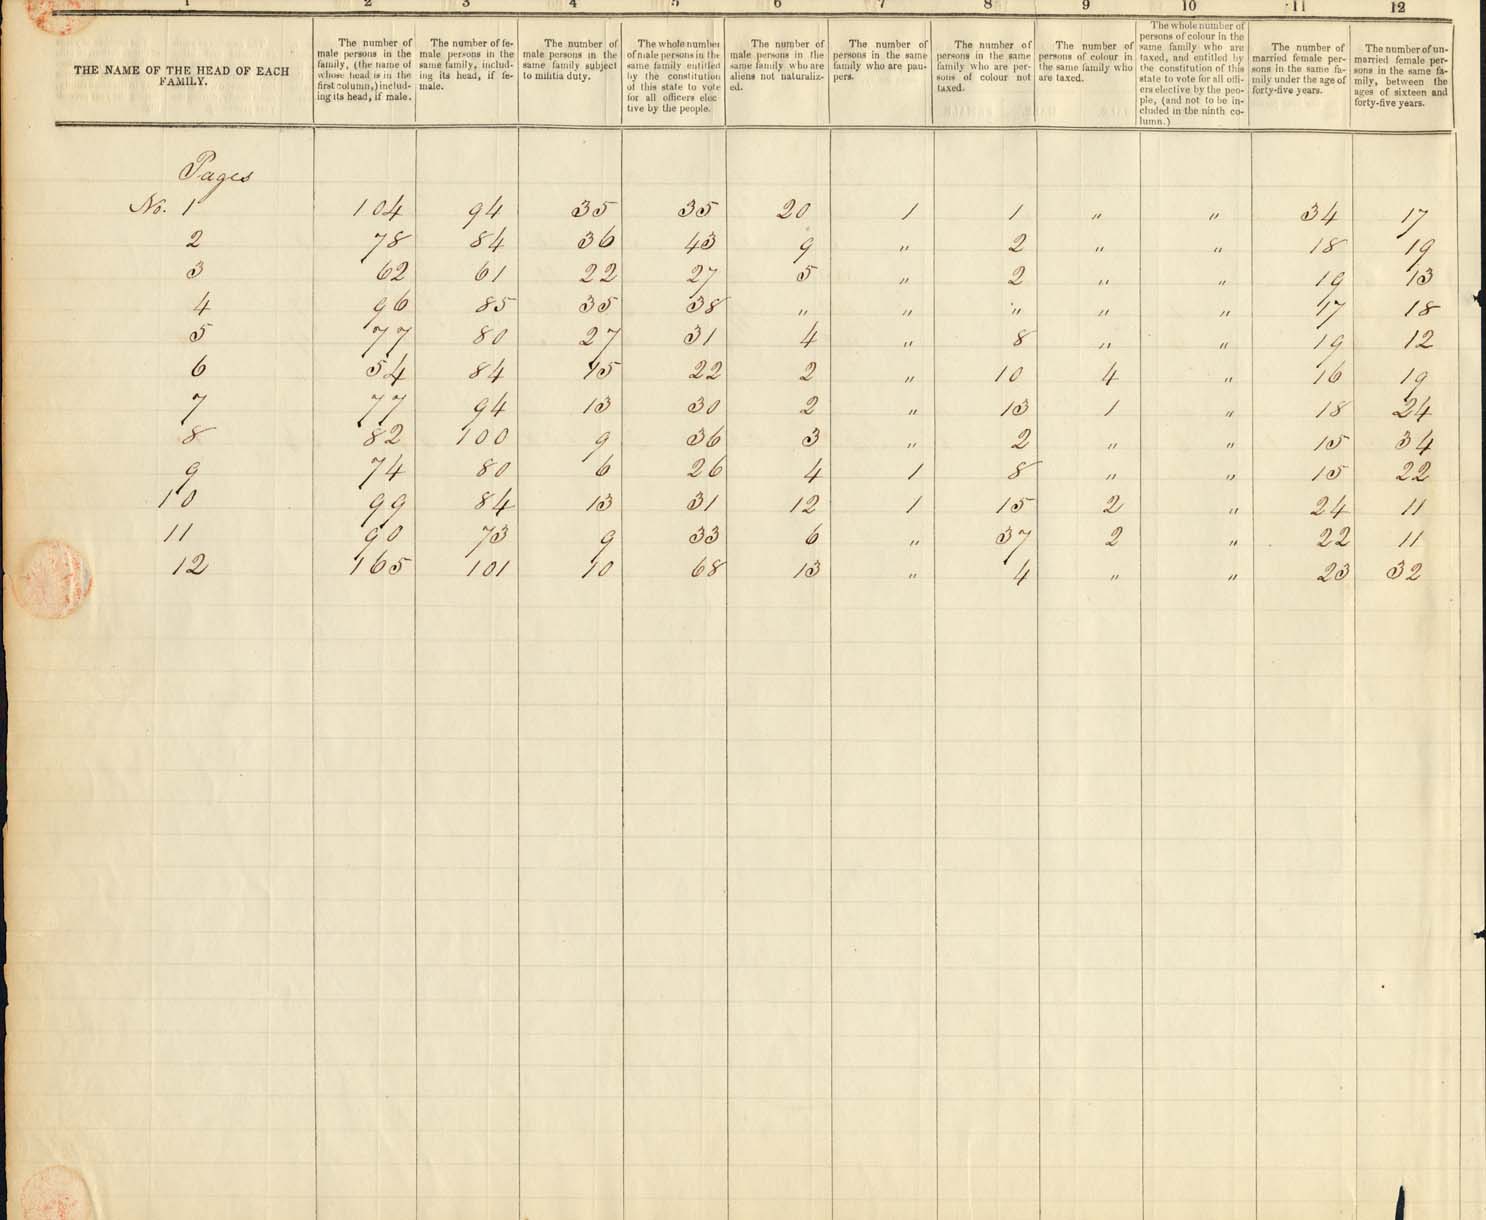 1 2 3 4 5 6 7 8 9 10 11 12
THE NAME OF THE HEAD OF EACH
FAMILY.
The number of
male persons in the
family, (the name of
whose head is in the
first column,) includ-
ing its head, if male.
The number of fe-
male persons in the
same family, includ-
ing its head, if fe-
male.
The number of
male persons in the
same family subject
to militia duty.
The whole number
of male persons in the
same family entitled
by the constitution
of this state to vote
for all officers elec
tive by the people.
The number of
male persons in the
same family who are
aliens not naturaliz-
ed.
The number of
persons in the same
family who are pau-
pers.
The number of
persons in the same
family who are per-
sons of colour not
taxed.
The number of
persons of colour in
the same family who
are taxed.
The whole number of
persons of colour in the
same family who are
taxed, and entitled by
the constitution of this
state to vote for all offi-
cers elective by the peo-
ple, (and not to be in-
cluded in the ninth co-
lumn.)
The number of
married female per-
sons in the same fa-
mily under the age of
forty-five years.
The number of un-
married female per-
sons in the same fa-
mily, between the
ages of sixteen and
forty-five years.
Pages
No. 1 104 94 35 35 20 1 1 " " 34 17
2 78 84 36 43 9 " 2 " " 18 19
3 62 61 22 27 5 " 2 " " 19 13
4 96 85 35 38 " " " " " 17 18
5 77 80 27 31 4 " 8 " " 19 12
6 54 84 15 22 2 " 10 4 " 16 19
7 77 94 13 30 2 " 13 1 " 18 24
8 82 100 9 36 3 " 2 " " 15 34
9 74 80 6 26 4 1 8 " " 15 22
10 99 84 13 31 12 1 15 2 " 24 11
11 90 73 9 33 6 " 37 2 " 22 11
12 165 101 10 68 13 " 4 " " 23 32